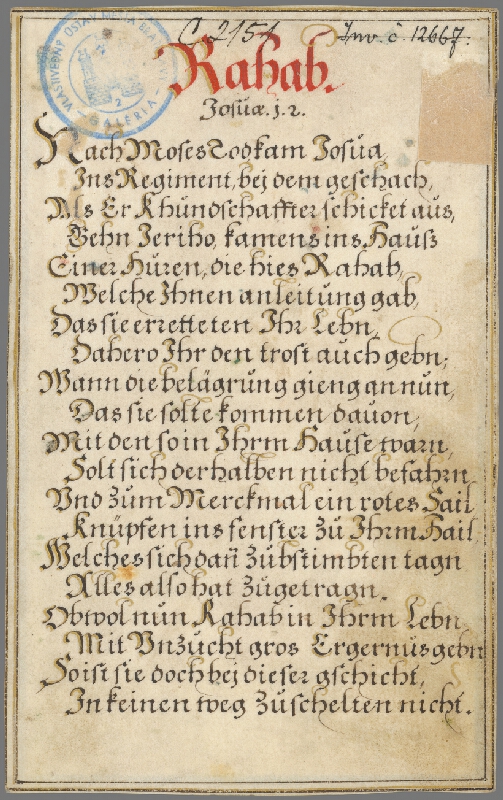 C 2154 Inv. č. 12667.
VÝTVARNÝ ÚSTAV MĚSTA
GALERIA
2
Rahab.
Josuæ. j. 2.
Nach Moses Tod kam Josua,
Ins Regiment, bej dem geschach,
Als Er Khündschaffter schicket aus,
Gehn Jeriho, kamens ins Hauß
Einer Huren, die hies Rahab,
Welche Ihnen anleitung gab,
Das sie erretteten Ihr Lebn,
Dahero Ihr den trost auch gebn;
Wann die belägrung gieng an nun,
Das sie solte kommen dauon,
Mit den so in Ihrm Hause warn,
Solt sich derhalben nicht befahrn
Vnd zum Merckmal ein rotes Sail
Knüpfen ins fenster zu Ihrm Hail,
Welches sich dan̄ zubstimbten tagn
Alles also hat zugetragn.
Obwol nun Rahab in Ihrm Lebn
Mit Vnzucht gros Ergernus gebn
So ist sie doch bej dieser gschicht,
In keinen weg zuschelten nicht.